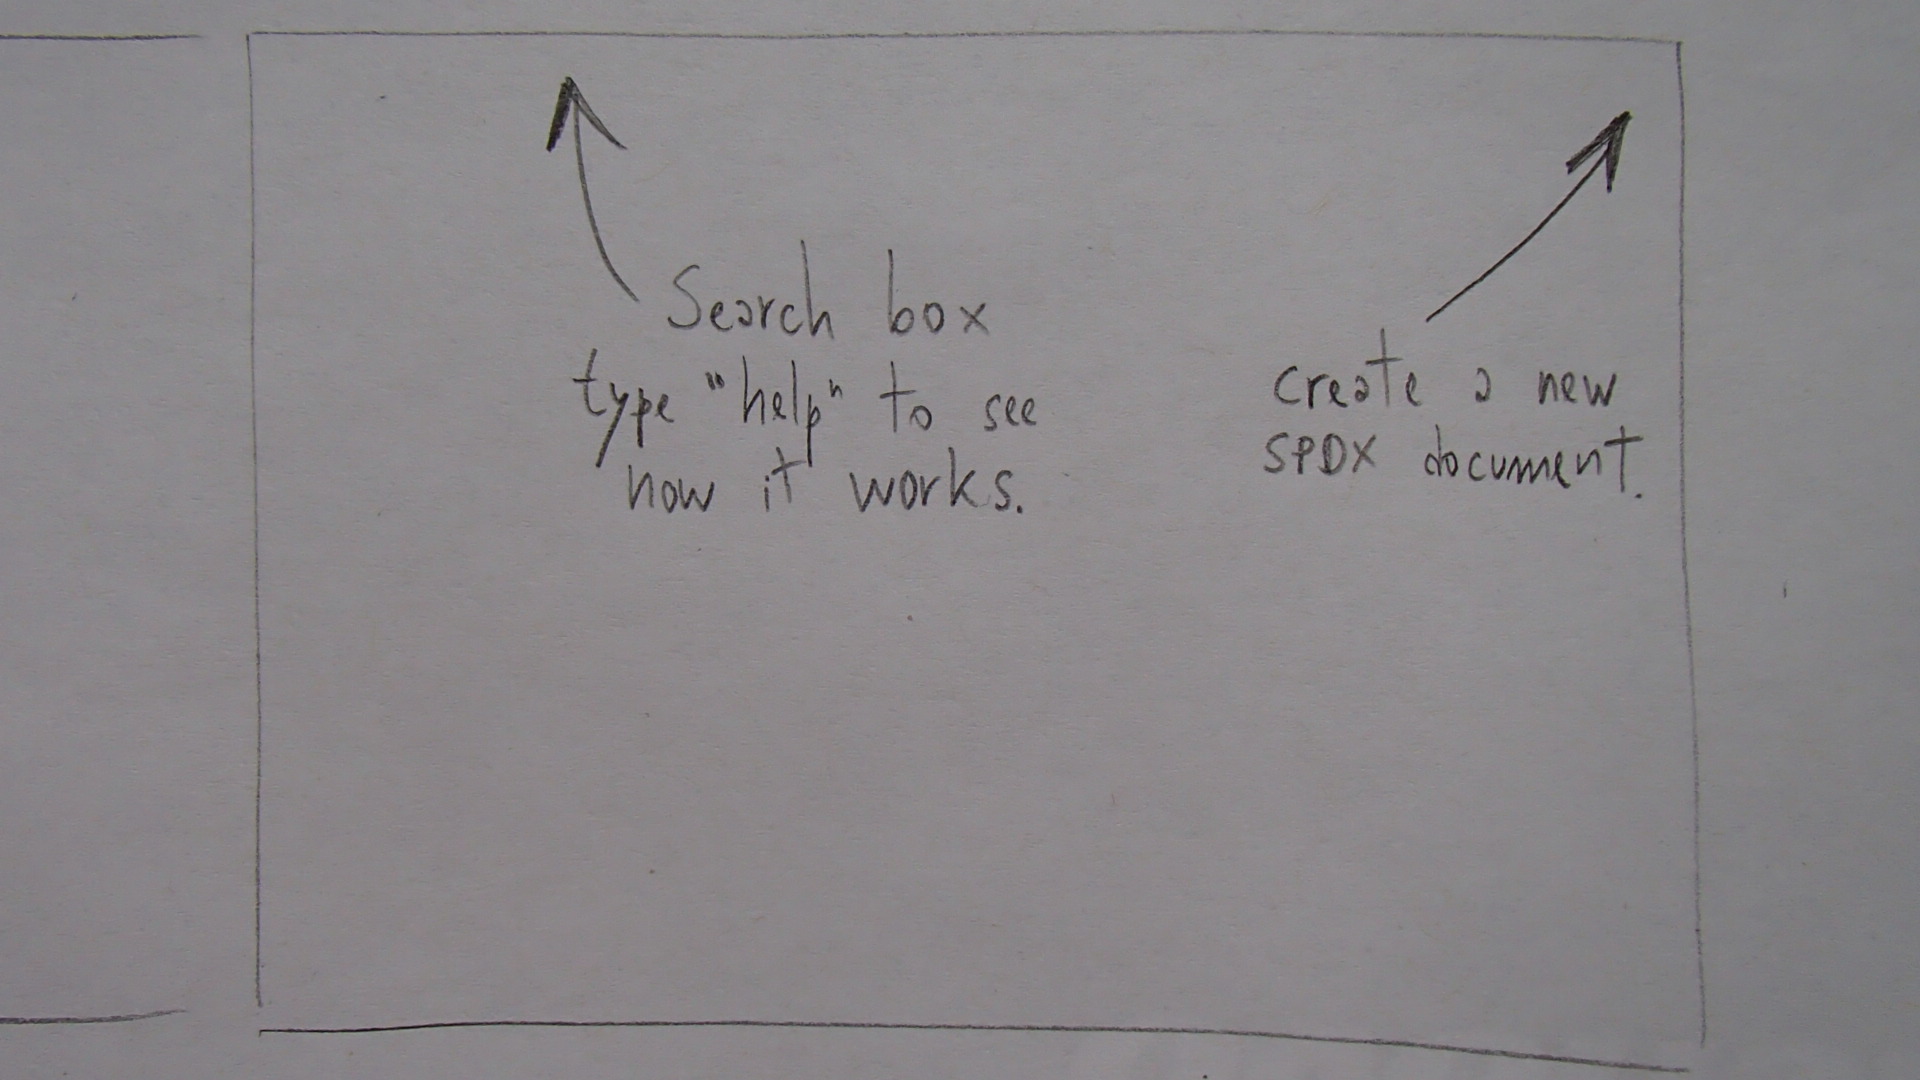 Search box
type "help" to see
how it works.
create a new
SPDX document.